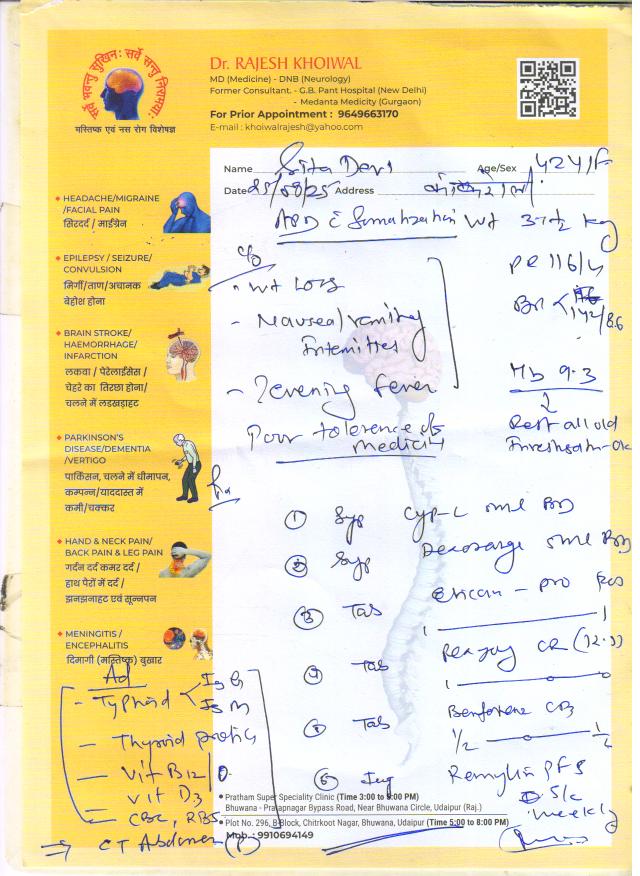 सर्वे भवन्तु सुखिनः सर्वे सन्तु निरामयाः
मस्तिष्क एवं नस रोग विशेषज्ञ
Dr. RAJESH KHOIWAL
MD (Medicine) - DNB (Neurology)
Former Consultant. - G.B. Pant Hospital (New Delhi)
- Medanta Medicity (Gurgaon)
For Prior Appointment : 9649663170
E-mail : khoiwalrajesh@yahoo.com
Name Sita Devi Age/Sex 42y/F
Date 25/08/25 Address
Wt 37.2 kg
c/o
- Wt Loss
- Nausea/vomiting
Intermittent
- ? evening fever
Poor tolerance of
medicine
PR 116/m
Hb 9.3
Rest all old
HEADACHE/MIGRAINE
/FACIAL PAIN
सिरदर्द / माईग्रेन
EPILEPSY / SEIZURE/
CONVULSION
मिर्गी/ताण/अचानक
बेहोश होना
BRAIN STROKE/
HAEMORRHAGE/
INFARCTION
लकवा / पेरेलाईसेस /
चेहरे का तिरछा होना/
चलने में लडखड़ाहट
PARKINSON'S
DISEASE/DEMENTIA
/VERTIGO
पार्किसन, चलने में धीमापन,
कम्पन्न/याददास्त में
कमी/चक्कर
HAND & NECK PAIN/
BACK PAIN & LEG PAIN
गर्दन दर्द कमर दर्द /
हाथ पैरों में दर्द /
झनझनाहट एवं सूनापन
MENINGITIS /
ENCEPHALITIS
दिमागी (मस्तिष्क) बुखार
① Syp Cyp-L 5ml BD
② Syp Dexorange 5ml BD
③ Tab
④ Tab CR (12.5)
⑤ Tab
1/2 1/2
⑥ Inj PFS
S/c
weekly
Ad
- Typhoid IgG
IgM
- Thyroid profile
- Vit B12
Vit D3
- CBC, RBS
⇒ CT Abdomen (P)
Pratham Super Speciality Clinic (Time 3:00 to 5:00 PM)
Bhuwana - Pratapnagar Bypass Road, Near Bhuwana Circle, Udaipur (Raj.)
Plot No. 296, B-Block, Chitrkoot Nagar, Bhuwana, Udaipur (Time 5:00 to 8:00 PM)
Mob.: 9910694149